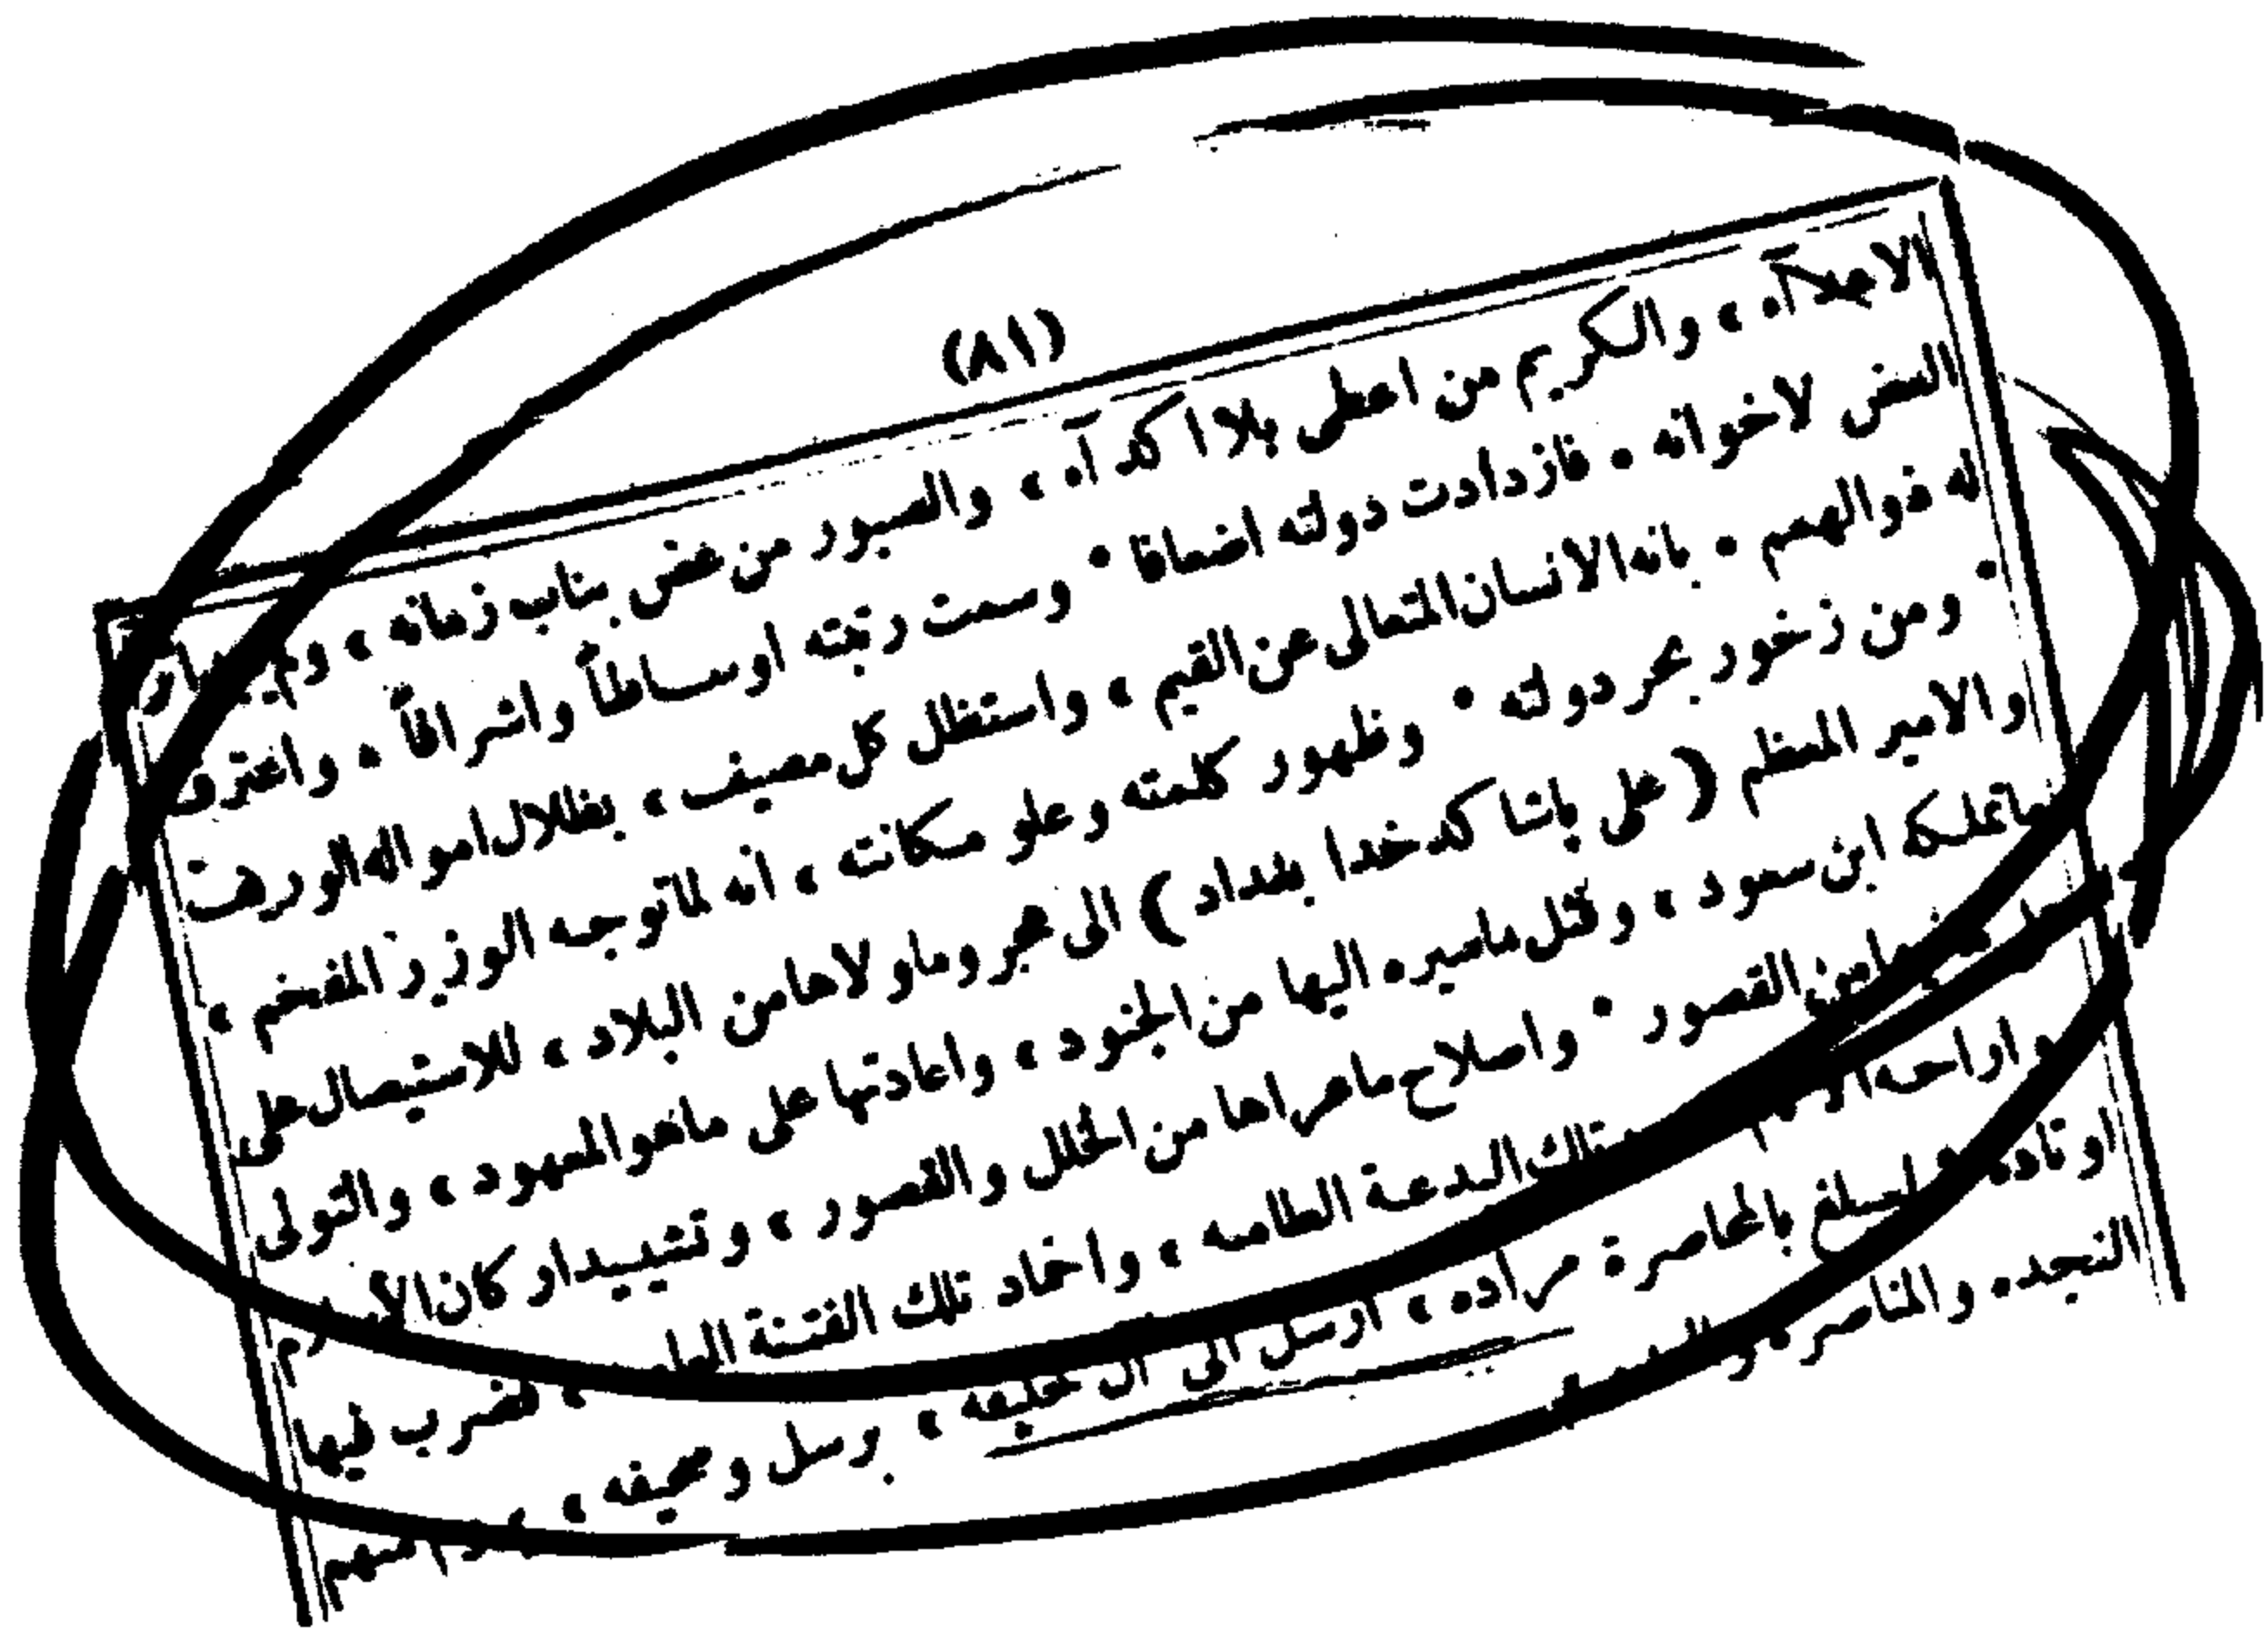 (٨١)
الاجلآء ، والكريم من اعطى بلا اكدآء ، والصبور من غض بناب زمانه ،
الغض لاخوانه ٠ فازدادت دولته اضعافا ٠ وسمت رتبته اوساطاً واشراقاً ٠ واعترف
له ذوالهمم ٠ بانه الانسان المتعالى عن القيم ، واستظل كل مصيف ، بظلال امواله الوريف
٠ ومن زخور بحر دولته ٠ وظهور كلمته وعلو مكانته ، أنه لما توجه الوزير المفخم ،
والامير المعظم (على باشا كدخدا بغداد) الى هجر وما والاها من البلاد ، للاستيصال على
ما تملكه ابن سعود ، وقتل ماسيره اليها من الجنود ، واعادتها على ماهو المعهود ، والتولى
القصور ٠ واصلاح ما عراها من الخلل والقصور ، وتشييد اركان
تلك البدعة الطامه ، واخماد تلك الفتنة ، فضرب فيها
اوتاده بالمحاصرة مراده ، ارسل الى آل خليفه ، برسل وصحيفه ،
النجده والمناصره